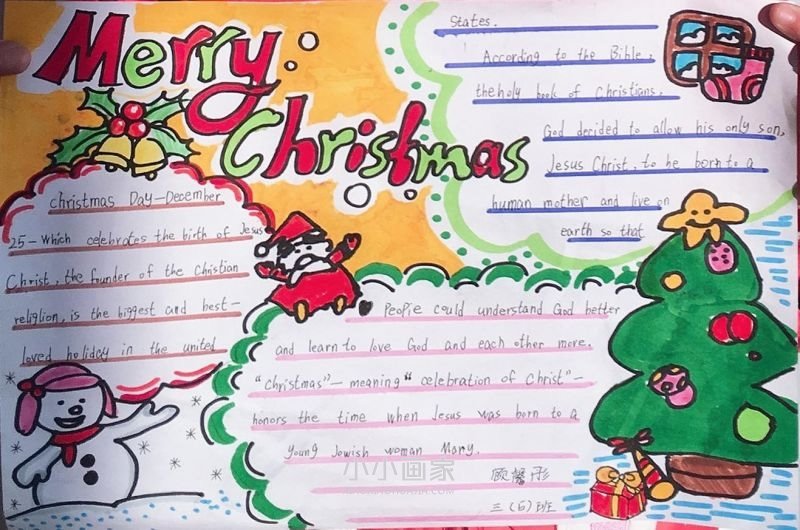 Merry
Christmas
Christmas Day—December
25—which celebrates the birth of Jesus
Christ, the founder of the Christian
religlion, is the biggest and best—
loved holiday in the united
States.
According to the Bible,
the holy book of Christians,
God decided to allow his only son,
Jesus Christ, to be born to a
human mother and live on
earth so that
People could understand God better
and learn to love God and each other more.
"Christmas"—meaning "celebration of Christ"—
honors the time when Jesus was born to a
young Jowish woman Mary.
小小画家
顾馨彤
三(6)班